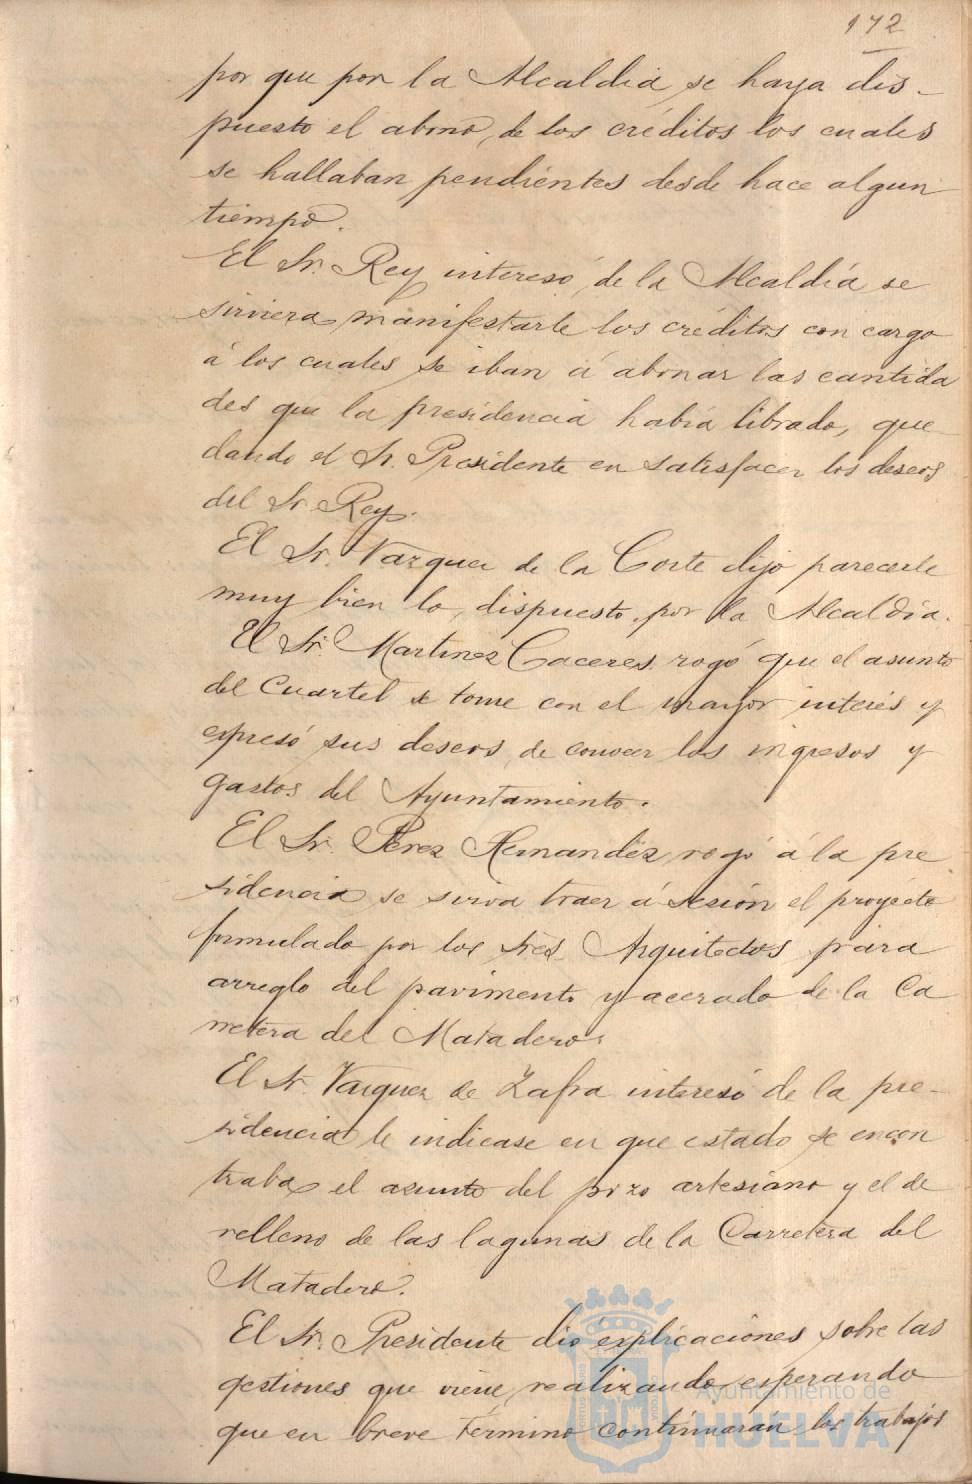 172
por que por la Alcaldia se haya dis-
puesto el abono de los créditos los cuales
se hallaban pendientes desde hace algun
tiempo.
El Sr. Rey interesó de la Alcaldía se
sirviera manifestarle los créditos con cargo
á los cuales se iban á abonar las cantida
des que la presidencia habia librado, que
dando el Sr. Presidente en satisfacer los deseos
del Sr. Rey.
El Sr. Vazquez de la Corte dijo parecerle
muy bien lo dispuesto por la Alcaldía.
El Sr. Martinez Caceres rogó que el asunto
del Cuartel se tome con el mayor interés y
expresó sus deseos de conocer los ingresos y
gastos del Ayuntamiento.
El Sr. Perez Hernandez rogó á la pre
sidencia se sirva traer á sesión el proyecto
formulado por los tres Arquitectos para
arreglo del pavimento y acerado de la Ca
rretera del Matadero.
El Sr. Vazquez de Zafra interesó de la pre-
sidencia le indicase en que estado se encon
traba el asunto del pozo artesiano y el de
relleno de las lagunas de la Carretera del
Matadero.
El Sr. Presidente dio explicaciones sobre las
gestiones que viene realizando esperando
que en breve término continuarán los trabajos
Ayuntamiento de
HUELVA